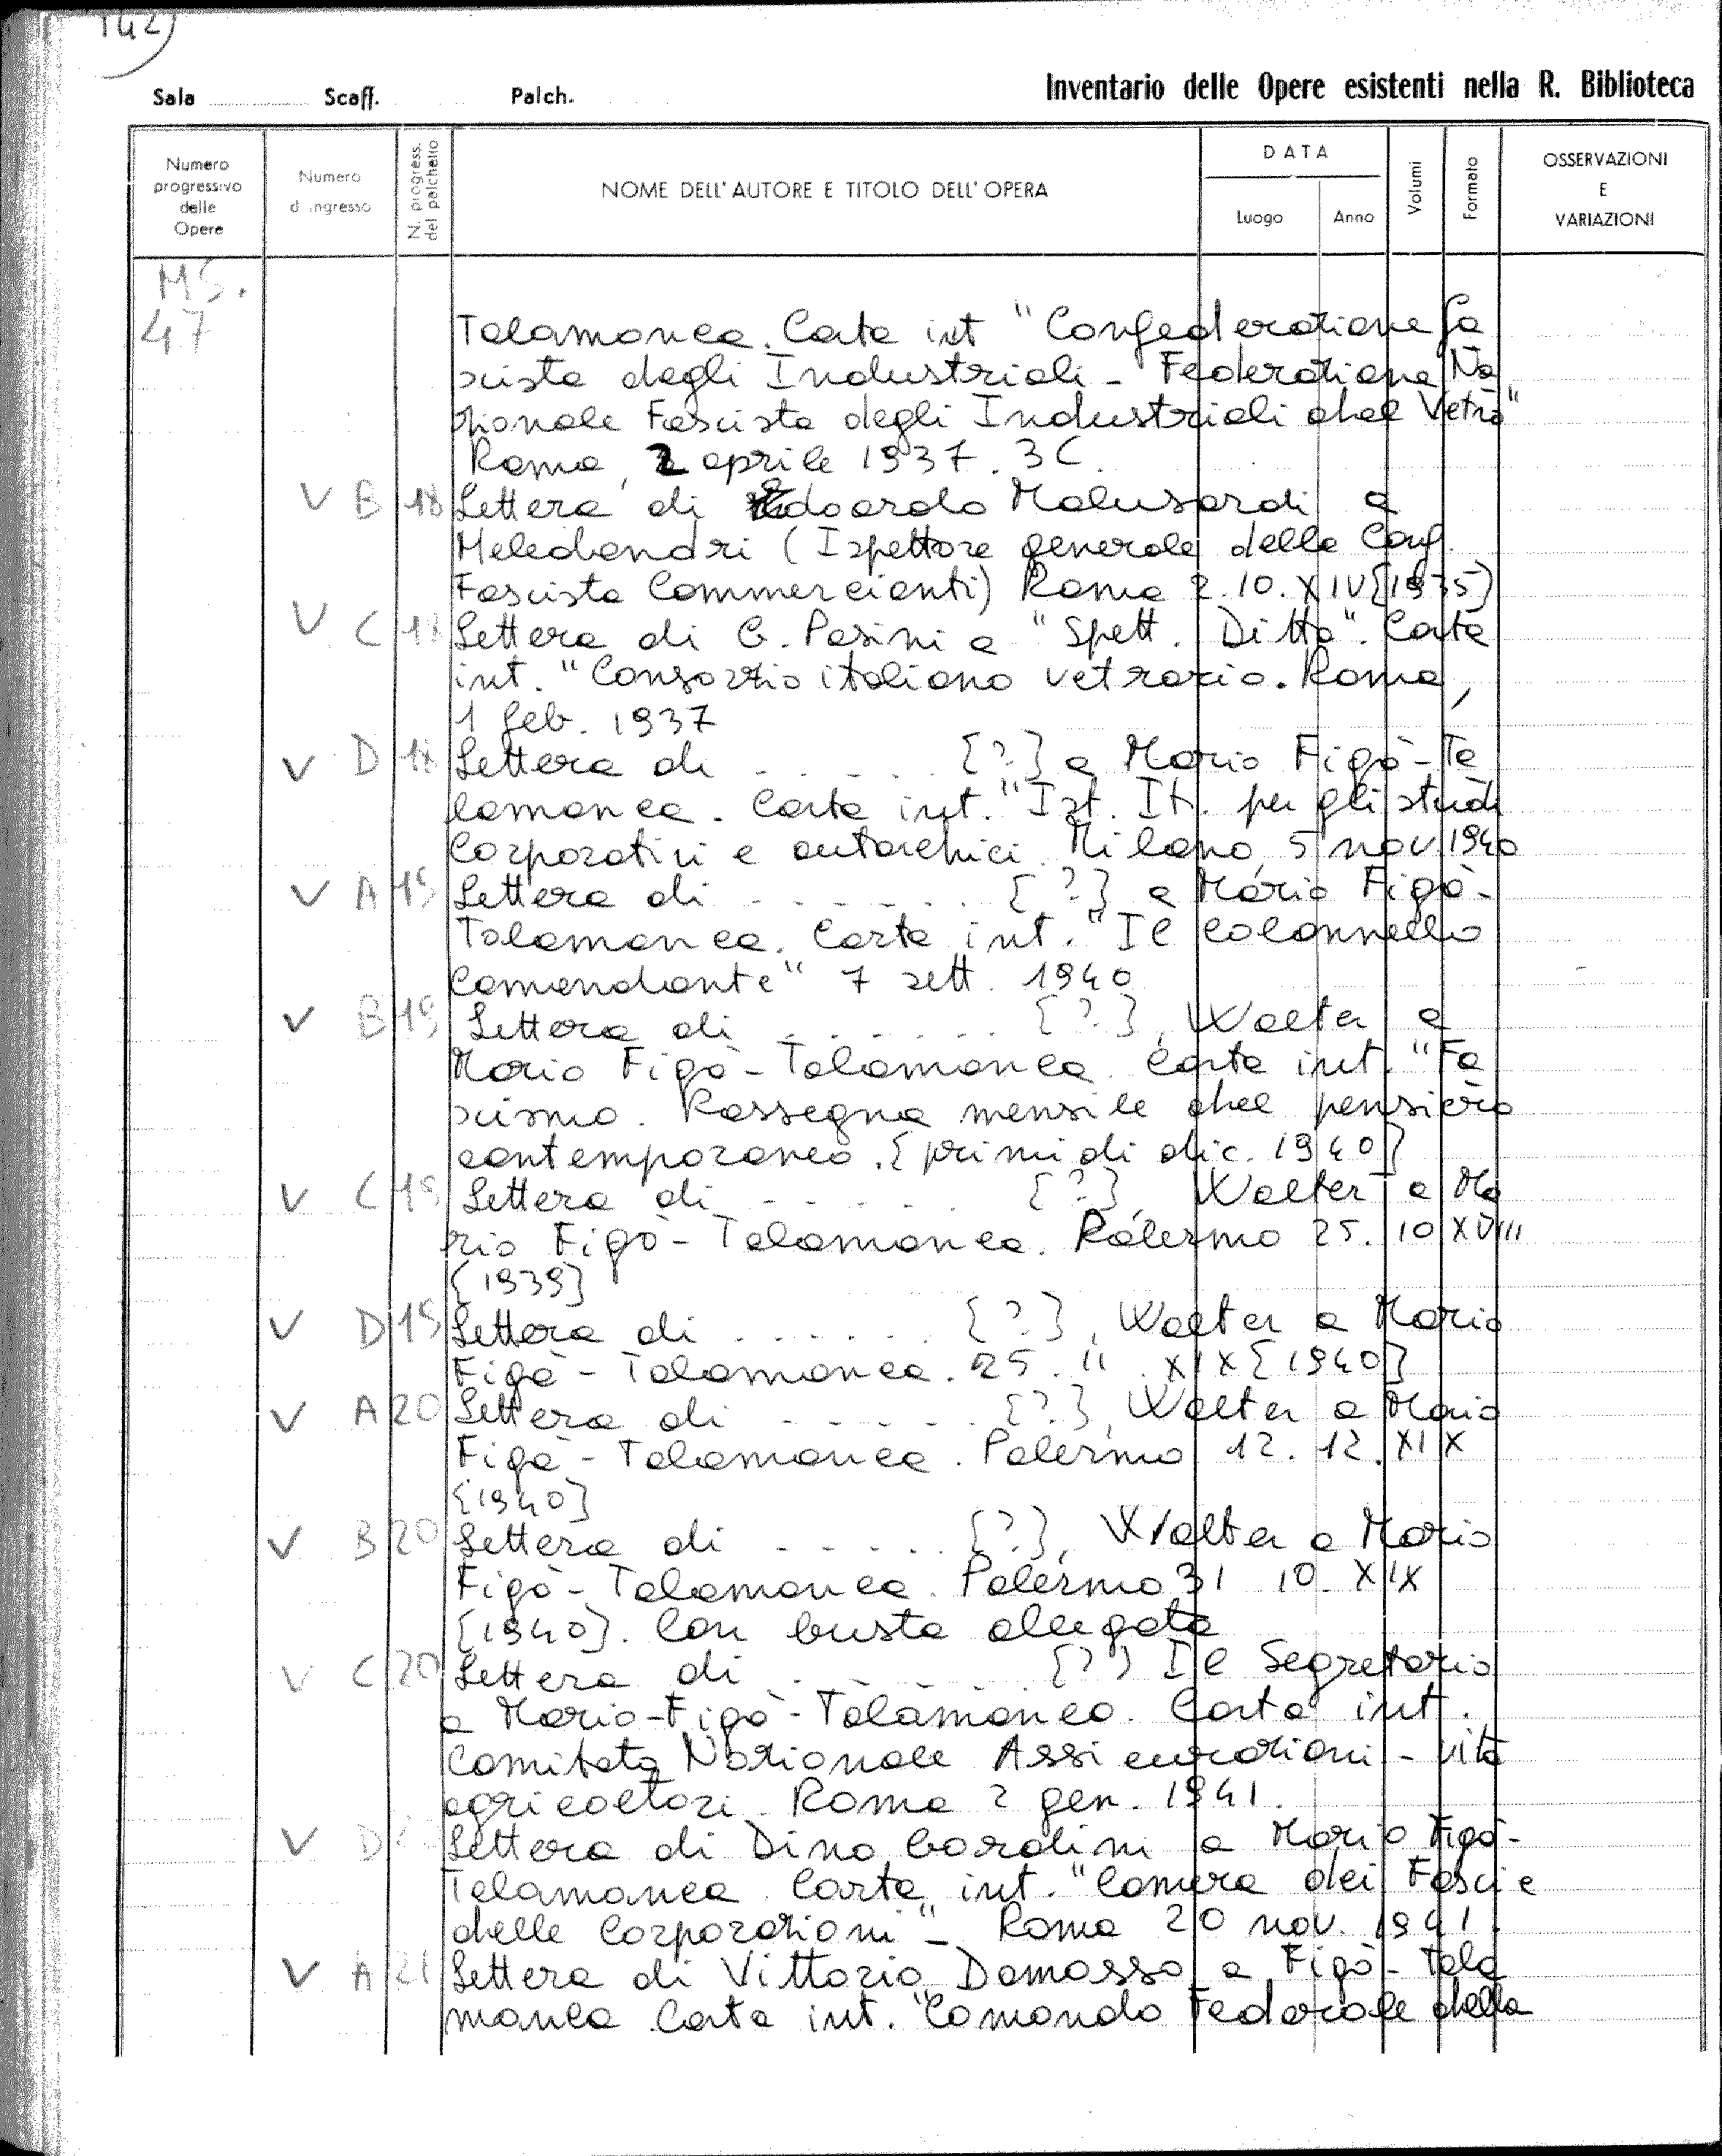 142)
Sala Scaff. Palch. Inventario delle Opere esistenti nella R. Biblioteca
Numero progressivo delle Opere
Numero d'ingresso
N. progress. del palchetto
NOME DELL'AUTORE E TITOLO DELL'OPERA
DATA
Luogo
Anno
Volumi
Formato
OSSERVAZIONI E VARIAZIONI
MS.
47
Talamonca. Carta int "Confederazione fa
scista degli Industriali - Federazione Na
zionale Fascista degli Industriali del Vetro"
Roma, 2 aprile 1937. 3C.
V B 18 Lettera di Edoardo Malusardi a
Meledandri (Ispettore generale della Conf.
Fascista Commercianti) Roma 2.10.XIV [1935]
V C 18 Lettera di G. Pasini a "Spett. Ditta". Carta
int. "Consorzio italiano vetrario. Roma,
1 feb. 1937
V D 18 Lettera di ...... [?] a Mario Figà-Ta
lamanca. Carta int. "Ist. It. per gli studi
Corporativi e autarchici. Milano, 5 nov 1940
V A 19 Lettera di ....... [?] a Mario Figà-
Talamanca. Carta int. "Il Colonnello
Comandante" 7 sett. 1940
V B 19 Lettera di ....... [?], Walter a
Mario Figà-Talamanca. Carta int. "Fa
scismo. Rassegna mensile del pensiero
contemporaneo. [primi di dic. 1940]
V C 19 Lettera di ...... [?], Walter a Ma
rio Figà-Talamanca. Palermo 25. 10 XVIII
[1939]
V D 19 Lettera di ...... [?], Walter a Mario
Figà-Talamanca. 25. 11. XIX [1940]
V A 20 Lettera di ...... [?], Walter a Mario
Figà-Talamanca. Palermo 12. 12. XIX
[1940]
V B 20 Lettera di ...... [?], Walter a Mario
Figà-Talamanca. Palermo 31 10. XIX
[1940]. Con busta allegata
V C 20 Lettera di ...... [?] Il Segretario
a Mario-Figà-Talamanca. Carta int.
Comitato Nazionale Assicurazioni-vita
agricoltori. Roma 2 gen. 1941.
V D Lettera di Dino Gardini a Mario Figà-
Talamanca. Carta int. "Camera dei Fasci e
delle Corporazioni" - Roma 20 nov. 1941.
V A 21 Lettera di Vittorio Damasso a Figà-Tala
manca Carta int. "Comando Federale della